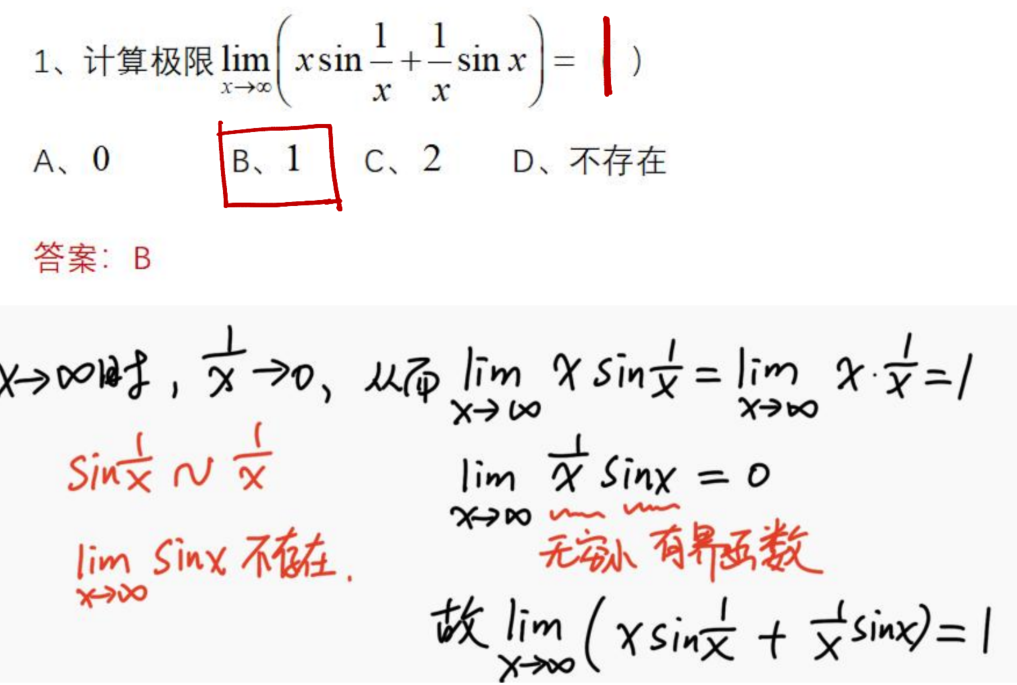 1、计算极限 lim x→∞ ( x sin 1/x + 1/x sin x ) = 1 )
A、0 B、1 C、2 D、不存在
答案：B
x→∞时，1/x→0，从而 lim x→∞ x sin 1/x = lim x→∞ x·1/x = 1
sin 1/x ~ 1/x
lim x→∞ 1/x sinx = 0
无穷小 有界函数
lim x→∞ sinx 不存在.
故 lim x→∞ ( x sin 1/x + 1/x sinx) = 1